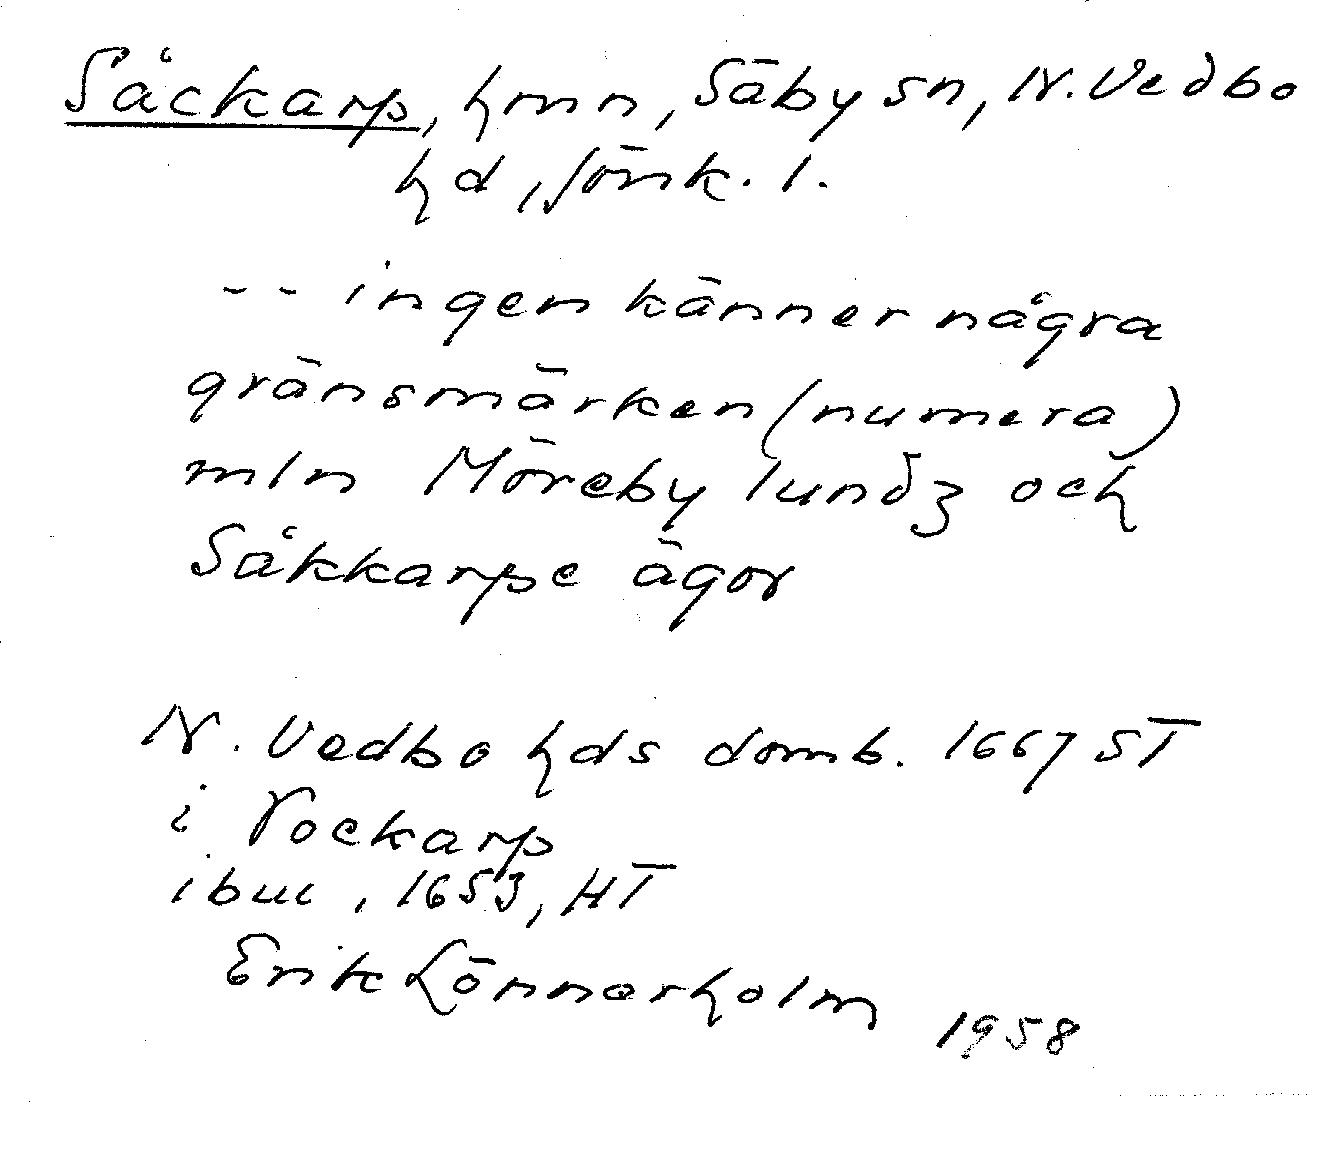 Såckarp, hmn, Säby sn, N. Vedbo
hd, Jönk. l.
-- ingen känner några
gränsmärken (numera)
mln Möreby lundz och
Såkkarpe ägor
N. Vedbo hds domb. 1667 ST
i Vockarp
ibm, 1653, HT
Erik Lönnerholm 1958